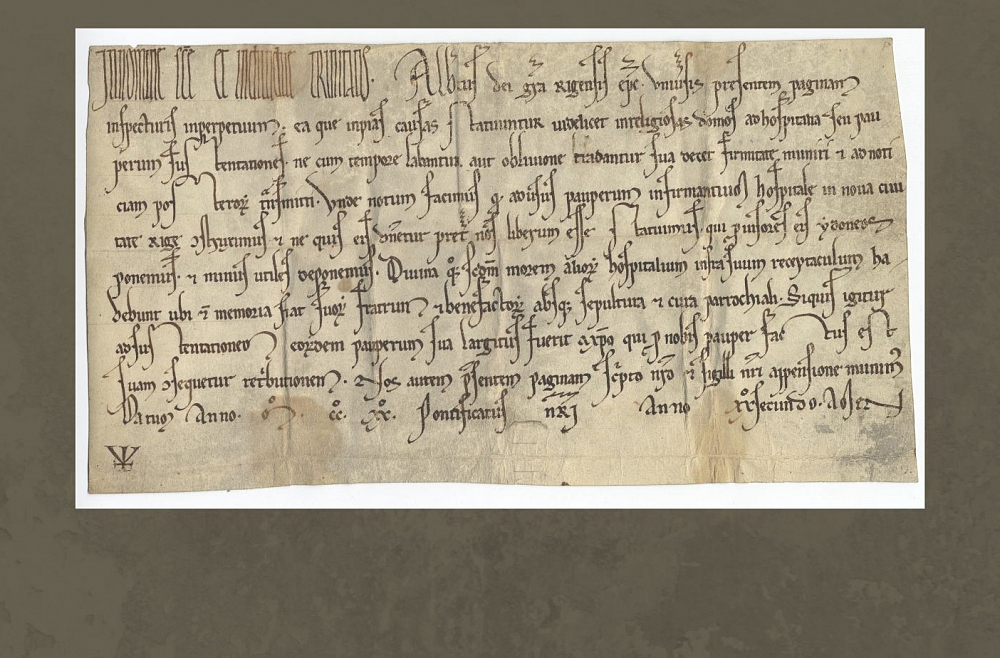 In nomine sce et individue trinitatis. Albtus dei gra Rigensis epc. Vniusis presentem paginam
inspecturis inperpetuum. ea que in pias causas statuuntur uidelicet in religiosas domos ad hospitum seu pau
perum sustentationes. ne cum tempore labantur. aut obliuione tradantur sua decet firmitate muniri & ad noti
ciam posteroru tnsmitti. Vnde notum facimus qd ad usus pauperum infirmantium hospitale in noua ciui
tate Rige 9struximus & ne quis eis dnetur pret nos liberum esse statuimus. qui puisores eis ydoneos
ponemus. & minus utiles deponemus. Diuina qoq; scdm morem alior hospitalium infra suum receptaculum ha
debunt ubi & memoria fiat suor fratrum & benefactor absq; sepultura & cura parrochiali. Siquis igitur
ad sustentationem eordem pauperum sua largitus fuerit a xpo qui p nobis pauper factus est
suam 9sequetur retbutionem. Nos autem psentem paginam scpto nro & sigilli nri appensione munim
Datum Anno. Mo. CCo. XXo. Pontificatus nri Anno XXo secundo.